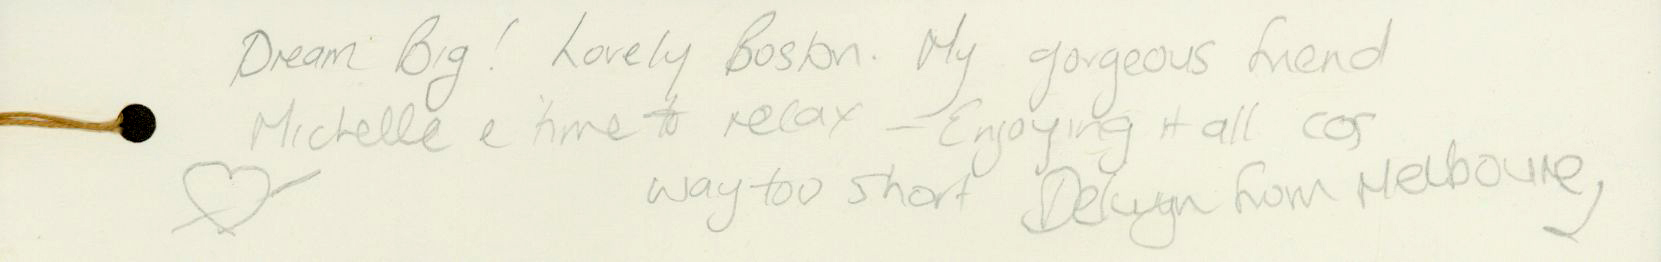 Dream Big! Lovely Boston. My gorgeous friend
Michelle e time to relax – Enjoying it all cos
way too short Delwyn from Melbourne,